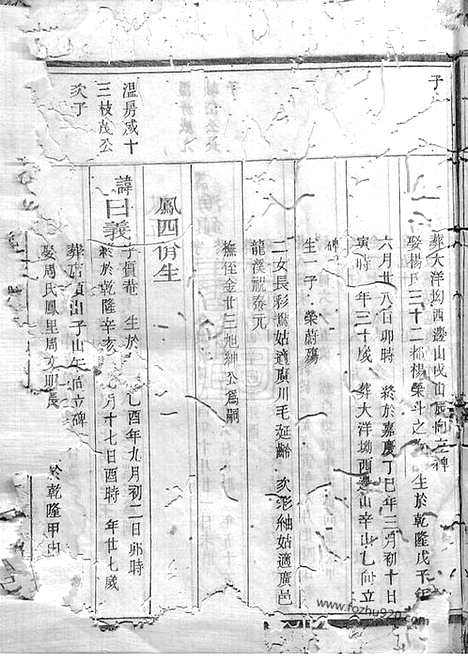 子
葬大洋坳西邊山戌山辰向立碑
娶楊氏三十二都楊榮斗之女 生於乾隆戊子年
六月廿八日卯時 終於嘉慶丁巳年三月初十日
寅時 年三十歲 葬大洋坳西邊山辛山乙向立
碑
生一子 榮蔚殤
二女長彩鸞姑適廣川毛延齡 次彩紬姑適廣邑
龍溪祝泰元
撫侄金廿三旭紳公爲嗣
溫房咸十
三枝茂公
次子
鳳四佾生
諱曰義 字質菴 生於 乙酉年九月初二日卯時
終於乾隆辛亥 月十七日酉時 年廿七歲
葬 子山午向立碑
娶周氏鳳里周文明長 於乾隆甲申
www.fozhu920.com